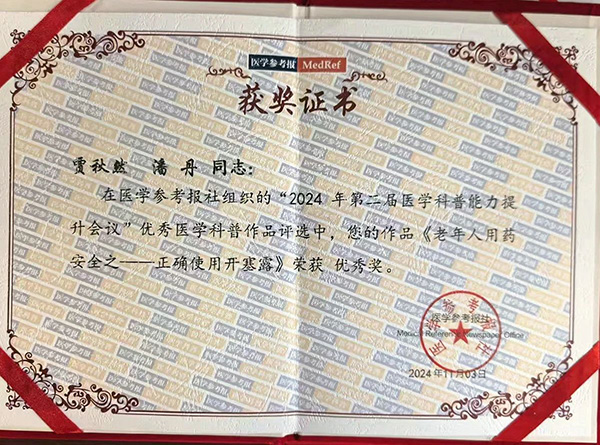 医学参考报 MedRef
获奖证书
贾秋然 潘丹 同志：
在医学参考报社组织的“2024 年第二届医学科普能力提
升会议”优秀医学科普作品评选中，您的作品《老年人用药
安全之——正确使用开塞露》荣获 优秀奖。
医学参考报社
医学参考报社
Medical Reference Newspaper Office
2024年11月03日